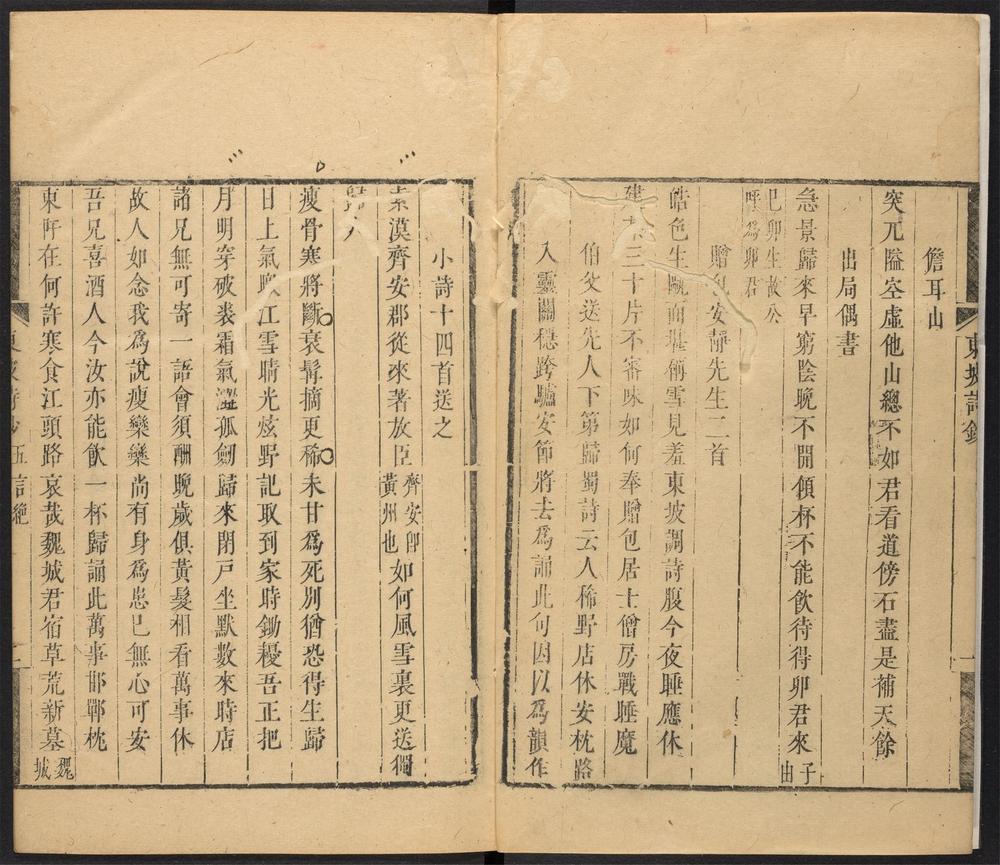 儋耳山
突兀隘空虛他山總不如君看道傍石盡是補天餘
出局偶書
急景歸來早窮陰晚不開傾杯不能飲待得卯君來子由
巳卯生故公
呼為卯君
贈包安靜先生二首
皓色生甌面堪稱雪見羞東坡調詩腹今夜睡應休
建茶三十片不審味如何奉贈包居士僧房戰睡魔
伯父送先人下第歸蜀詩云人稀野店休安枕路
入靈關穩跨驢安節將去為誦此句因以為韻作
小詩十四首送之
索漠齊安郡從來著放臣齊安郎黃州也如何風雪裏更送獨
歸人
瘦骨寒將斷衰髯摘更稀未甘為死別猶恐得生歸
日上氣暾江雪晴光炫野記取到家時鋤耰吾正把
月明穿破裘霜氣澀孤劒歸來閉戶坐默數來時店
諸兄無可寄一語會須酬晚歲俱黃髮相看萬事休
故人如念我為說瘦欒欒尚有身為患已無心可安
吾兄喜酒人今汝亦能飲一杯歸誦此萬事邯鄲枕
東阡在何許寒食江頭路哀哉魏城君宿草荒新墓魏城
東坡詩鈔 五言絕